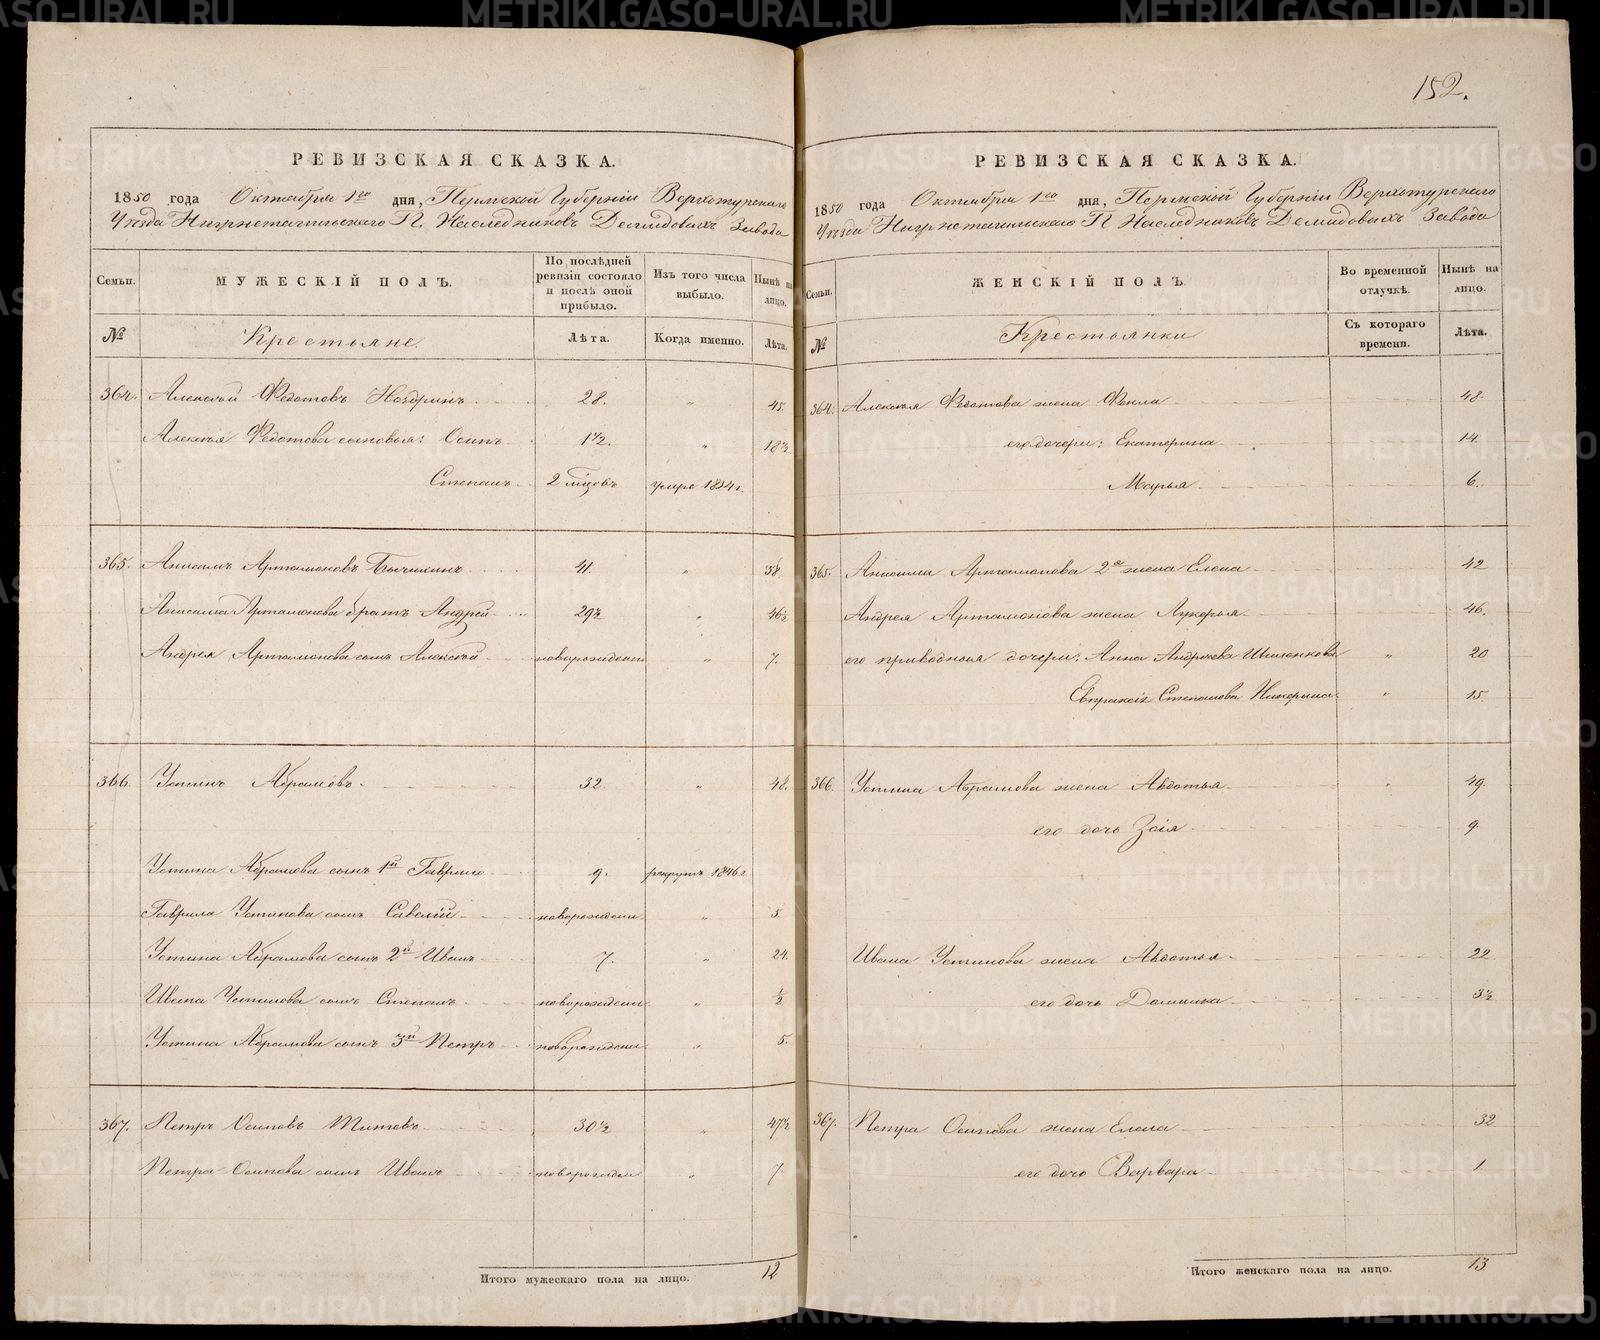 152.
РЕВИЗСКАЯ СКАЗКА.
1850 года Октября 1го дня, Пермской Губерніи Верхотурскаго
Уѣзда Нижнетагильскаго Г. Наслѣдниковъ Демидовыхъ Завода
Семьи. МУЖЕСКІЙ ПОЛЪ. По послѣдней ревизіи состояло и послѣ оной прибыло. Изъ того числа выбыло. Нынѣ на лицо.
№ Крестьяне. Лѣта. Когда именно. Лѣта.
364. Алексѣй Федотовъ Ноздринъ 28. " 45.
Алексѣя Федотова сыновья: Осипъ 1½. " 18½
Степанъ 2 мѣсяцовъ умре 1834 г.
365. Анисимъ Артамоновъ 41. " 58.
Анисима Артамонова братъ Андрей 29½ " 46½
Андрея Артамонова сынъ Алексѣй новорожденн " 7.
366. Устинъ Абрамовъ. 32. " 48.
Устина Абрамова сынъ 1й Гаврило 9. рекрутъ 1846 г
Гаврила Устинова сынъ Савелій новорожденн " 5.
Устина Абрамова сынъ 2й Иванъ 7. " 24.
Ивана Устинова сынъ Степанъ новорожденн " ½
Устина Абрамова сынъ 3й Петръ новорожденн " 5.
367. Петръ Осиповъ Титовъ 30½ " 47½
Петра Осипова сынъ Иванъ новорожден " 7.
Итого мужескаго пола на лицо. 12
РЕВИЗСКАЯ СКАЗКА.
1850 года Октября 1го дня, Пермской Губерніи Верхотурскаго
Уѣзда Нижнетагильскаго Г. Наслѣдниковъ Демидовыхъ Завода
Семьи. ЖЕНСКІЙ ПОЛЪ. Во временной отлучкѣ. Нынѣ на лицо.
№ Крестьянки Съ котораго времени. Лѣта.
364. Алексѣя Федотова жена Фекла 48.
его дочери: Екатерина 14.
Марья 6.
365. Анисима Артамонова 2я жена Елена 42
Андрея Артамонова жена Лукерья 46.
его приводныя дочери: Анна Андреева " 20
Евпраксія Степанова " 15.
366. Устина Абрамова жена Авдотья " 49.
его дочь Зоія 9.
Ивана Устинова жена Авдотья 22.
его дочь Домника 3½
367. Петра Осипова жена Елена 32
его дочь Варвара 1.
Итого женскаго пола на лицо. 13
METRIKI.GASO-URAL.RU